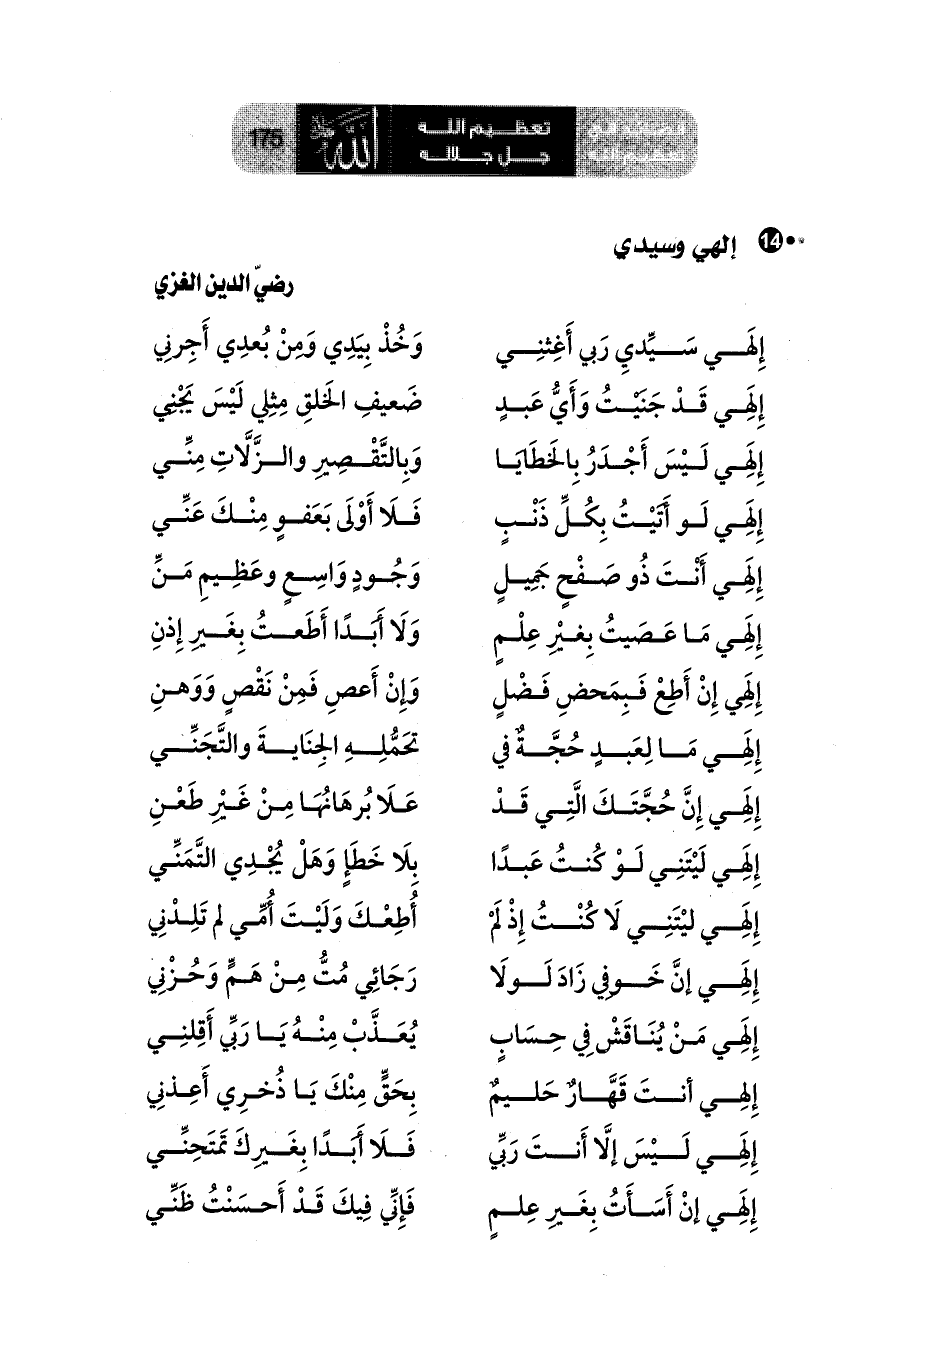 175
تعظيم الله
جل جلاله
قصائد في
تعظيم الله
14 إلهي وسيدي
رضيّ الدين الغزي
إِلَهِي سَيِّدِي رَبِي أَغِثْنِي وَخُذْ بِيَدِي وَمِنْ بُعدِي أَجِرنِي
إِلَهِي قَدْ جَنَيْتُ وَأَيُّ عَبدٍ ضَعيفِ الخَلقِ مِثلِي لَيْسَ يَجْنِي
إِلَهِي لَيْسَ أَجْدَرُ بِالخَطَايَا وَبِالتَّقْصِيرِ والزَّلَّاتِ مِنِّي
إِلَهِي لَو أَتَيْتُ بِكُلِّ ذَنْبٍ فَلَا أَوْلَى بَعَفوٍ مِنْكَ عَنِّي
إِلَهِي أَنْتَ ذُو صَفْحٍ جَمِيلٍ وَجُودٍ وَاسِعٍ وعَظِيمِ مَنِّ
إِلَهِي مَا عَصَيتُ بِغيْرِ عِلْمٍ وَلَا أَبَدًا أَطَعتُ بِغَيرِ إِذنِ
إِلَهِي إِنْ أُطِعْ فَبِمَحضِ فَضْلٍ وَإِنْ أَعصِ فَمِنْ نَقْصٍ وَوَهنِ
إِلَهِي مَا لِعَبدٍ حُجَّةٌ في تَحَمُّلِهِ الجِنَايةَ والتَّجَنِّي
إِلَهِي إِنَّ حُجَّتَكَ الَّتِي قَدْ عَلَا بُرهَانُهَا مِنْ غَيْرِ طَعْنِ
إِلَهِي لَيْتَنِي لَوْ كُنتُ عَبدًا بِلَا خَطَإٍ وَهَلْ يُجْدِي التَّمَنِّي
إِلَهِي لَيْتَنِي لَا كُنْتُ إِذْ لَمْ أُطِعْكَ وَلَيْتَ أُمِّي لم تَلِدْنِي
إِلَهِي إِنَّ خَوفي زَادَ لَولَا رَجَائِي مُتُّ مِنْ هَمٍّ وَحُزْنِي
إِلَهِي مَنْ يُنَاقَشْ فِي حِسَابٍ يُعَذَّبْ مِنْهُ يَا رَبِّي أَقِلنِي
إِلَهِي أنتَ قَهَّارٌ حَلِيمٌ بِحَقٍّ مِنْكَ يَا ذُخرِي أَعِذنِي
إِلَهِي لَيْسَ إِلَّا أَنتَ رَبِّي فَلَا أَبَدًا بِغَيرِكَ تَمتَحِنِّي
إِلَهِي إِنْ أَسَأْتُ بِغَيرِ عِلمٍ فَإِنِّي فِيكَ قَدْ أَحسَنْتُ ظَنِّي